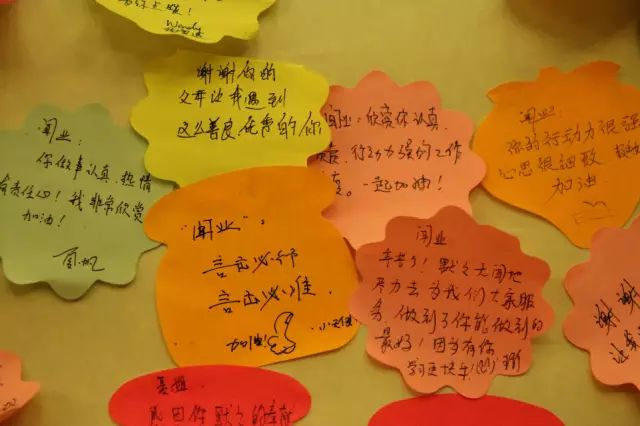 Wendy
谢谢你的
父母让我遇到
这么善良优秀的你
闻业:
你做事认真、热情
有责任心!我非常欣赏
加油!
闻业:欣赏你认真、
行动力强的工作
一起加油!
闻业:
你的行动力很强
心思很细致
加油
"闻业":
言出必行
言出必准
加油!
闻业
辛苦了!默默无闻地
尽力去为我们大家服
务,做到了你能做到的
最好!因为有你
更快乐!
谢谢
因你默默的奉献